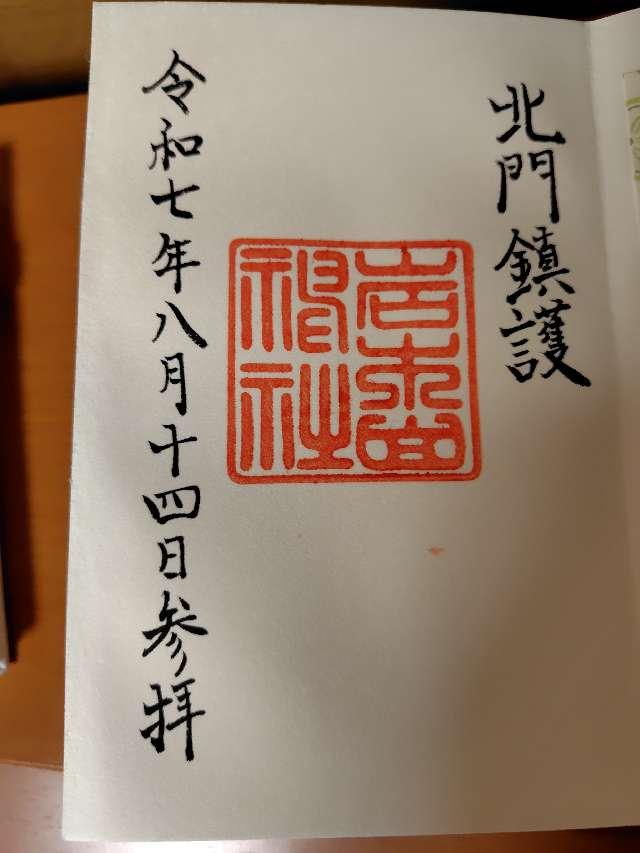 北門鎮護
岩木山
神社
令和七年八月十四日参拝